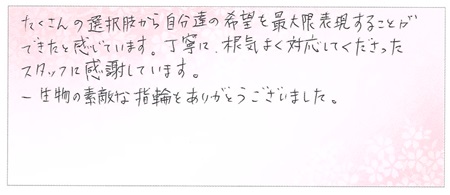 たくさんの選択肢から自分達の希望を最大限表現することが
できたと感じています。丁寧に、根気よく対応してくださった
スタッフに感謝しています。
一生物の素敵な指輪をありがとうございました。